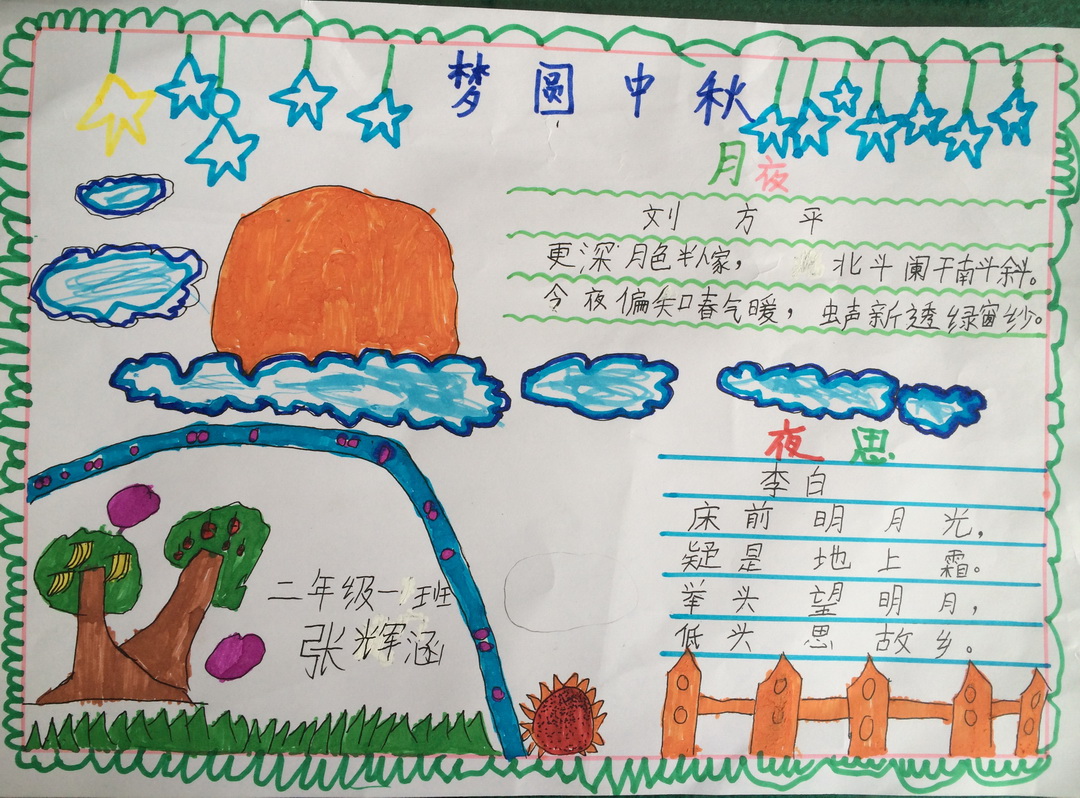 梦圆中秋
月夜
刘方平
更深月色半人家，北斗阑干南斗斜。
今夜偏知春气暖，虫声新透绿窗纱。
夜思
李白
床前明月光，
疑是地上霜。
举头望明月，
低头思故乡。
二年级一班
张辉涵